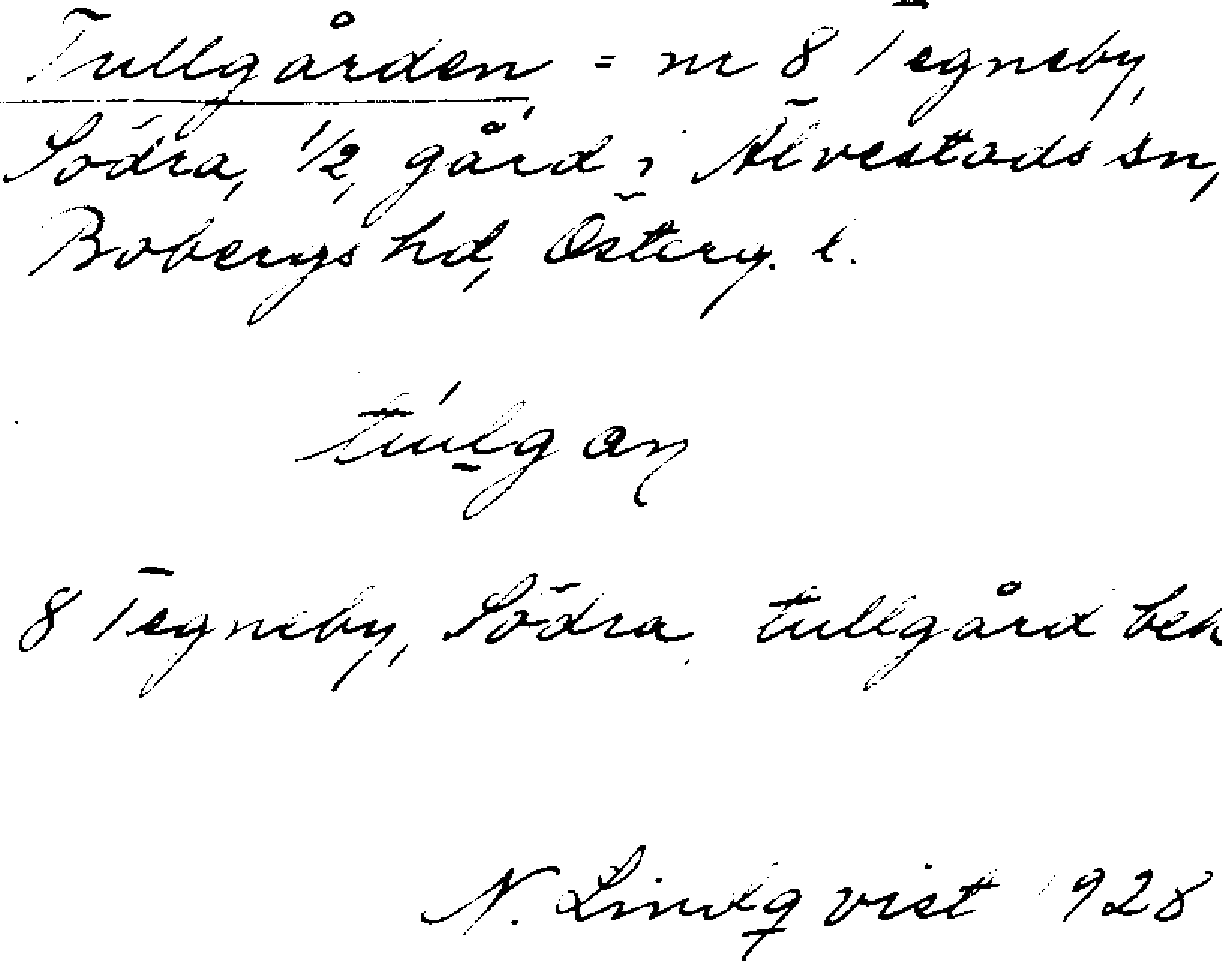 Tullgården = nr 8 Tegneby,
Södra, 1/2, gård i Älvestads sn,
Bobergs hd, Österg. l.
8 Tegneby, Södra, tullgård beh
N. Lindqvist 1928